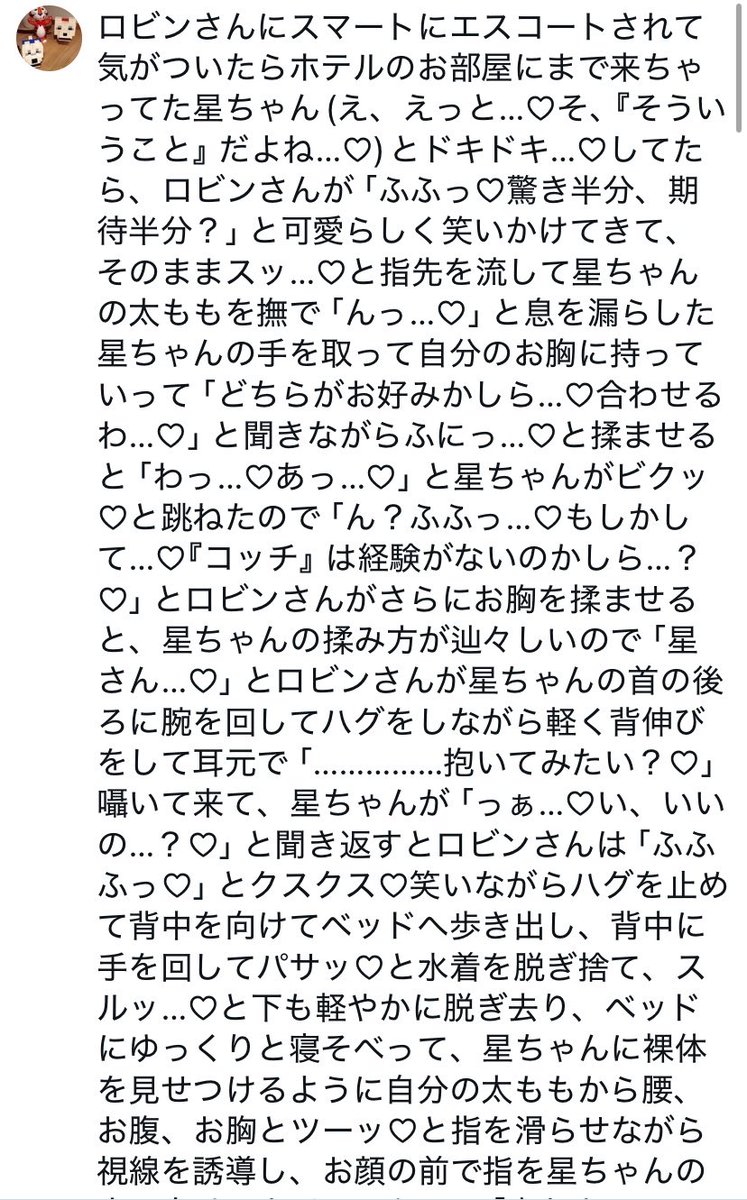 ロビンさんにスマートにエスコートされて
気がついたらホテルのお部屋にまで来ちゃ
ってた星ちゃん(え、えっと…♡そ、『そうい
うこと』だよね…♡)とドキドキ…♡してた
ら、ロビンさんが「ふふっ♡驚き半分、期
待半分？」と可愛らしく笑いかけてきて、
そのままスッ…♡と指先を流して星ちゃん
の太ももを撫で「んっ…♡」と息を漏らした
星ちゃんの手を取って自分のお胸に持って
いって「どちらがお好みかしら…♡合わせる
わ…♡」と聞きながらふにっ…♡と揉ませる
と「わっ…♡あっ…♡」と星ちゃんがビクッ
♡と跳ねたので「ん？ふふっ…♡もしかし
て…♡『コッチ』は経験がないのかしら…？
♡」とロビンさんがさらにお胸を揉ませる
と、星ちゃんの揉み方が辿々しいので「星
さん…♡」とロビンさんが星ちゃんの首の後
ろに腕を回してハグをしながら軽く背伸び
をして耳元で「……………抱いてみたい？♡」
囁いて来て、星ちゃんが「っぁ…♡い、いい
の…？♡」と聞き返すとロビンさんは「ふふ
ふっ♡」とクスクス♡笑いながらハグを止め
て背中を向けてベッドへ歩き出し、背中に
手を回してパサッ♡と水着を脱ぎ捨て、ス
ルッ…♡と下も軽やかに脱ぎ去り、ベッド
にゆっくりと寝そべって、星ちゃんに裸体
を見せつけるように自分の太ももから腰、
お腹、お胸とツーッ♡と指を滑らせながら
視線を誘導し、お顔の前で指を星ちゃんの